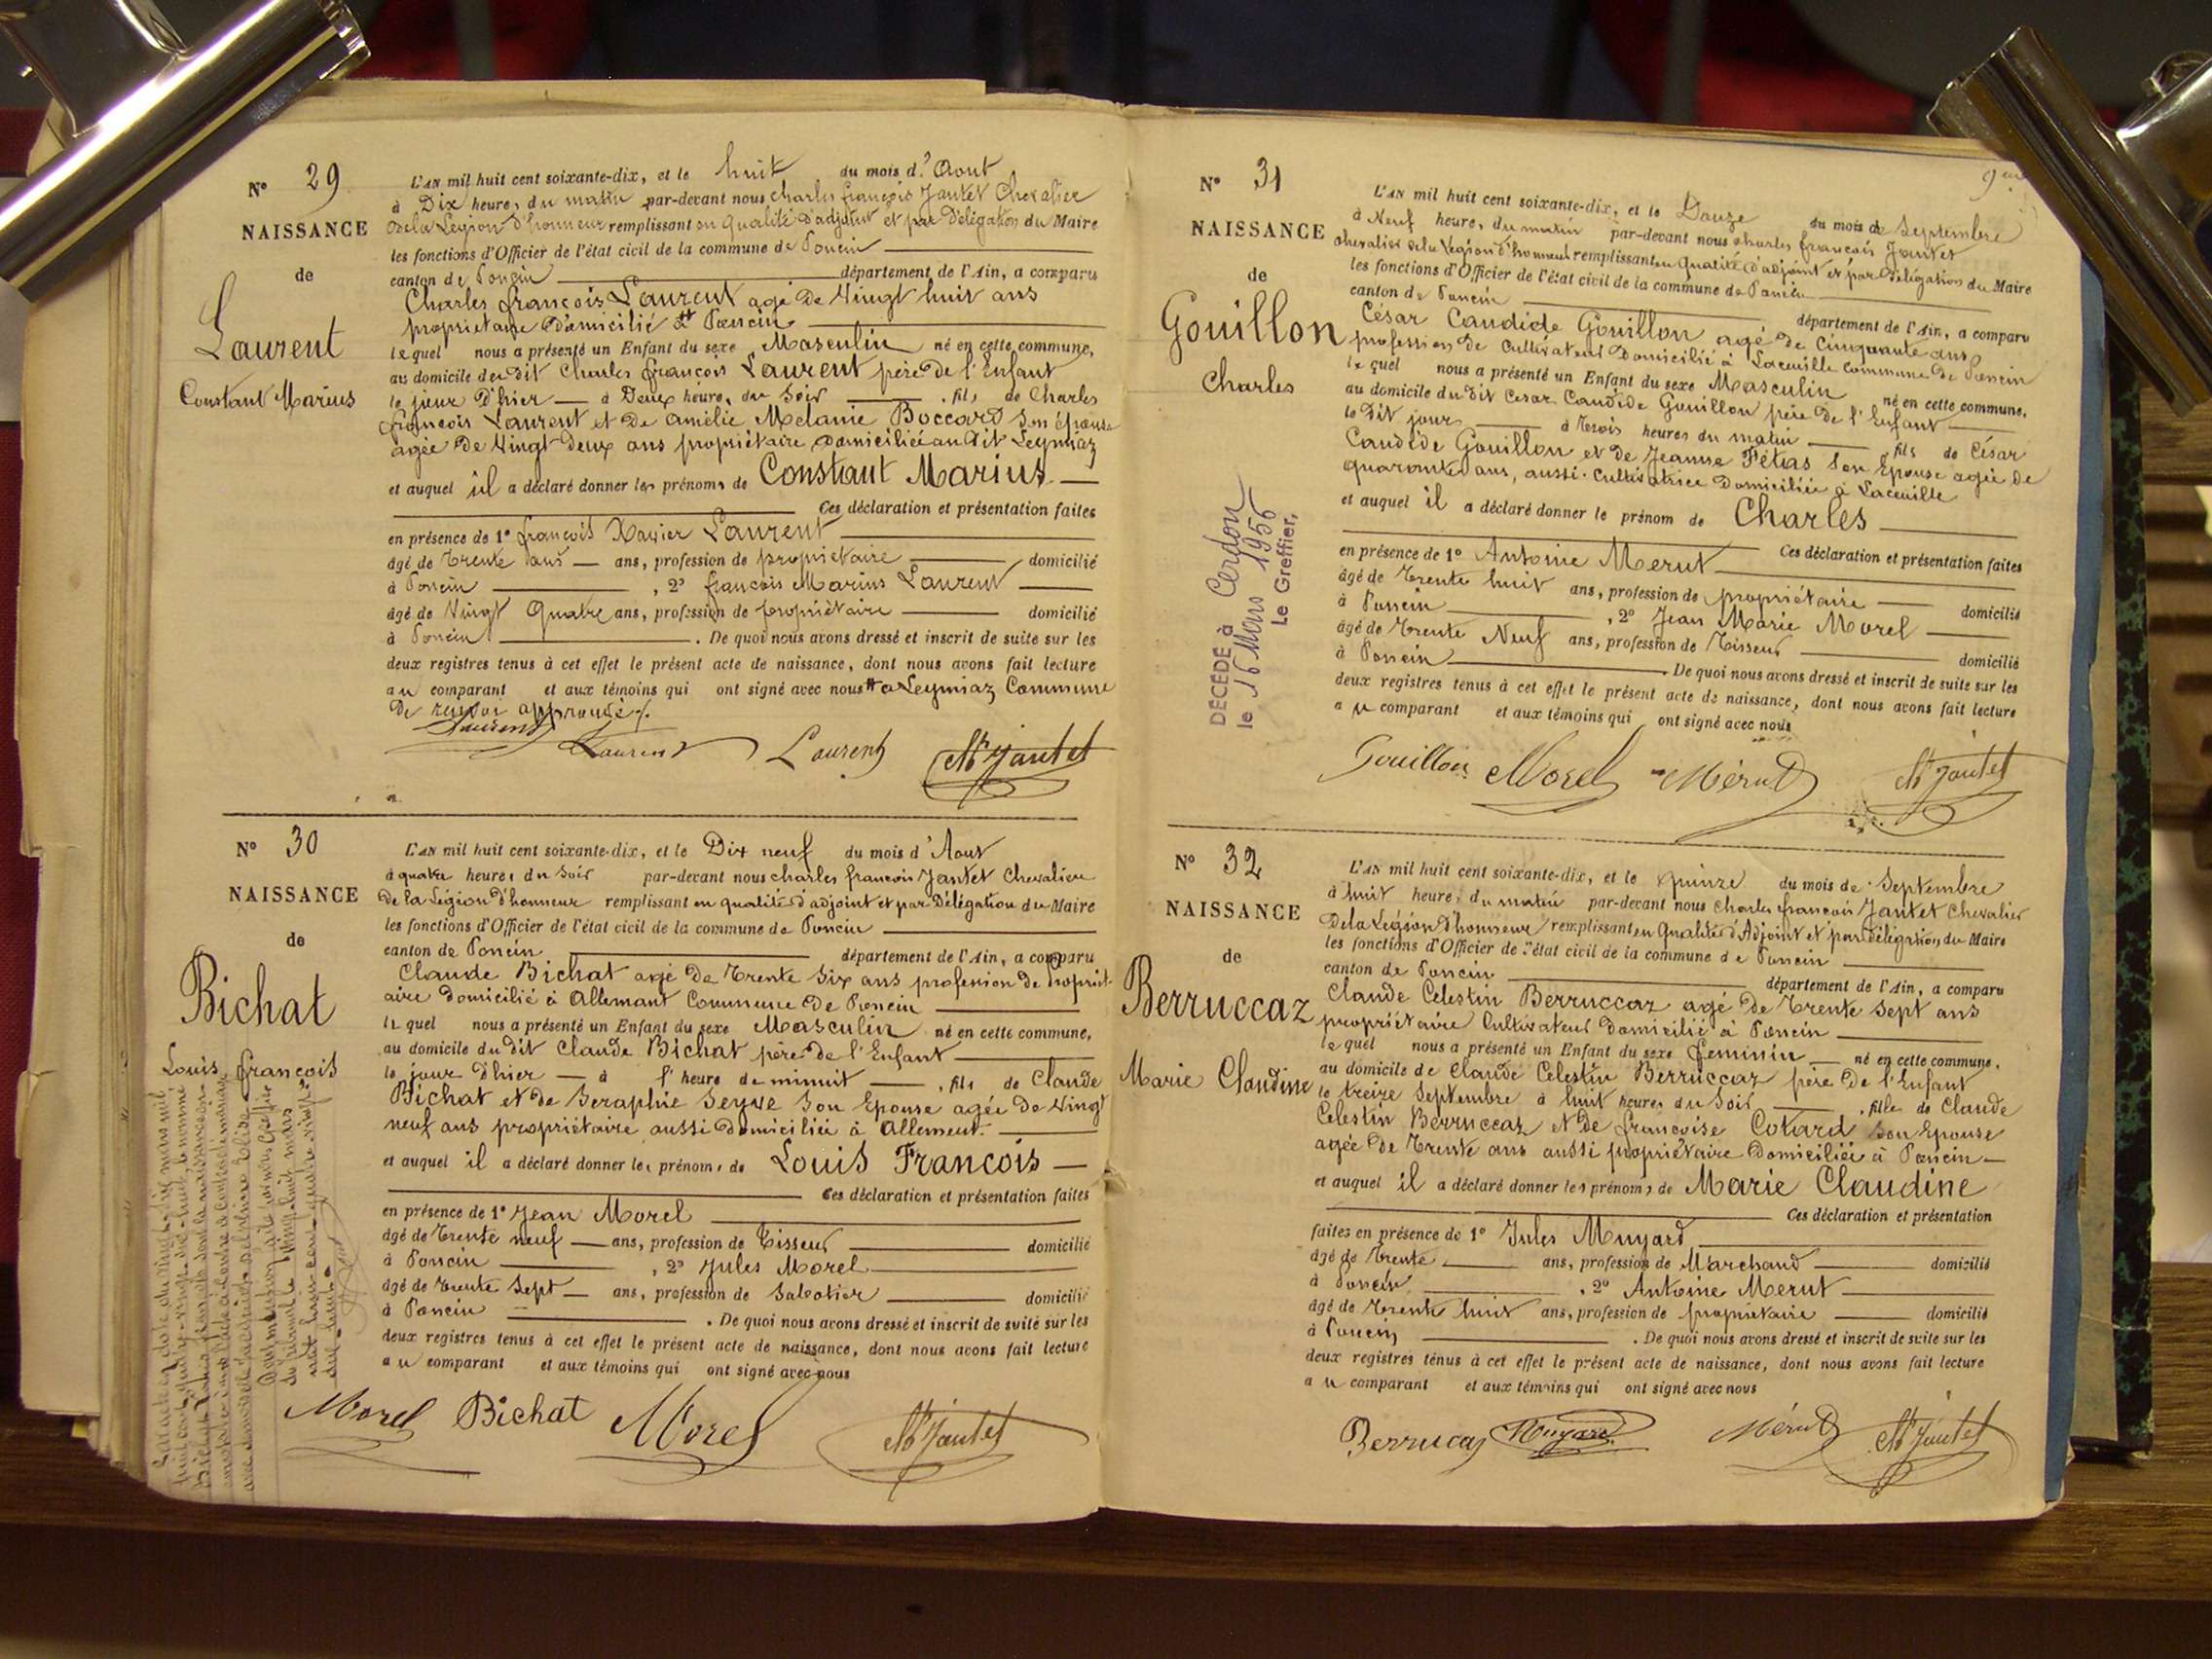 N° 29
NAISSANCE
de
Laurent
Constant Marius
L'AN mil huit cent soixante-dix, et le huit du mois d'Aout
à Dix heures du matin par-devant nous charles françois Jantet Chevalier
de la Légion d'honneur remplissant en qualité d'adjoint et par Délégation du Maire
les fonctions d'Officier de l'état civil de la commune de Poncin
canton de Poncin département de l'Ain, a comparu
Charles françois Laurent agé de Vingt huit ans
propriétaire domicilié # Poncin
lequel nous a présenté un Enfant du sexe Masculin né en cette commune,
au domicile du dit Charles françois Laurent père de l'Enfant
le jour d'hier à Deux heures du Soir , fils de Charles
françois Laurent et de Amélie Melanie Boccard son épouse
agée de Vingt Deux ans propriétaire domiciliée au dit Leymiaz
et auquel il a déclaré donner les prénoms de Constant Marius
Ces déclaration et présentation faites
en présence de 1° françois Xavier Laurent
âgé de Trente ans ans, profession de propriétaire domicilié
à Poncin , 2° françois Marius Laurent
âgé de Vingt Quatre ans, profession de propriétaire domicilié
à Poncin . De quoi nous avons dressé et inscrit de suite sur les
deux registres tenus à cet effet le présent acte de naissance, dont nous avons fait lecture
au comparant et aux témoins qui ont signé avec nous # a Leymiaz Commune
de renvoi approuvé
Laurent Laurent Laurent Jantet
N° 30
NAISSANCE
de
Bichat
Louis françois
L'AN mil huit cent soixante-dix, et le Dix neuf du mois d'Aout
à quatre heures du soir par-devant nous charles francois Jantet Chevalier
De la Légion d'honneur remplissant en qualité d'adjoint et par Délégation du Maire
les fonctions d'Officier de l'état civil de la commune de Poncin
canton de Poncin département de l'Ain, a comparu
Claude Bichat agé de Trente Six ans profession de Propriét
aire domicilié à Allemant Commune de Poncin
lequel nous a présenté un Enfant du sexe Masculin né en cette commune,
au domicile du dit Claude Bichat père de l'Enfant
le jour d'hier à l'heure de minuit , fils de Claude
Bichat et de Seraphie Seyve Son Epouse agée de Vingt
neuf ans propriétaire aussi domiciliée à Allement.
et auquel il a déclaré donner les prénoms de Louis François
Ces déclaration et présentation faites
en présence de 1° Jean Morel
âgé de Trente neuf ans, profession de Tisseur domicilié
à Poncin , 2° Jules Morel
âgé de trente Sept ans, profession de Sabotier domicilié
à Poncin . De quoi nous avons dressé et inscrit de suite sur les
deux registres tenus à cet effet le présent acte de naissance, dont nous avons fait lecture
au comparant et aux témoins qui ont signé avec nous
Morel Bichat Morel Jantet
N° 31
NAISSANCE
de
Gouillon
Charles
DÉCÉDÉ à Cerdon
le 16 Mars 1956
Le Greffier,
L'AN mil huit cent soixante-dix, et le Douze du mois de Septembre
à Neuf heures du matin par-devant nous charles francois Jantet
chevalier de la Légion d'honneur remplissant en Qualité d'adjoint et par Délégation du Maire
les fonctions d'Officier de l'état civil de la commune de Poncin
canton de Poncin département de l'Ain, a comparu
César Candide Gouillon agé de Cinquante ans
profession de Cultivateur domicilié à Lacueille Commune de Poncin
lequel nous a présenté un Enfant du sexe Masculin né en cette commune,
au domicile du dit Cesar Candide Gouillon père de l'Enfant
le dit jour à Trois heures du matin , fils de César
Candide Gouillon et de Jeanne Fétas Son Epouse agée de
quarante ans, aussi Cultivatrice Domiciliée à Lacueille
et auquel il a déclaré donner le prénom de Charles
Ces déclaration et présentation faites
en présence de 1° Antoine Merut
âgé de Trente huit ans, profession de propriétaire domicilié
à Poncin , 2° Jean Marie Morel
âgé de Trente Neuf ans, profession de Tisseur domicilié
à Poncin . De quoi nous avons dressé et inscrit de suite sur les
deux registres tenus à cet effet le présent acte de naissance, dont nous avons fait lecture
au comparant et aux témoins qui ont signé avec nous
Gouillon Morel Mérut Jantet
N° 32
NAISSANCE
de
Berruccaz
Marie Claudine
L'AN mil huit cent soixante-dix, et le quinze du mois de Septembre
à huit heures du matin par-devant nous Charles francois Jantet Chevalier
De la Légion d'honneur remplissant en Qualité d'Adjoint et par Délégation du Maire
les fonctions d'Officier de l'état civil de la commune de Poncin
canton de Poncin département de l'Ain, a comparu
Claude Celestin Berruccaz agé de Trente Sept ans
propriétaire Cultivateur domicilié à Poncin
lequel nous a présenté un Enfant du sexe feminin né en cette commune,
au domicile de Claude Celestin Berruccaz père de l'Enfant
le treize Septembre à huit heures du Soir , fille de Claude
Celestin Berruccaz et de françoise Cotard Son Epouse
agée de Trente ans aussi propriétaire Domiciliée à Poncin
et auquel il a déclaré donner les prénoms de Marie Claudine
Ces déclaration et présentation
faites en présence de 1° Jules Muyard
âgé de Trente ans, profession de Marchand domicilié
à Poncin , 2° Antoine Merut
âgé de Trente huit ans, profession de propriétaire domicilié
à Poncin . De quoi nous avons dressé et inscrit de suite sur les
deux registres tenus à cet effet le présent acte de naissance, dont nous avons fait lecture
au comparant et aux témoins qui ont signé avec nous
Berrucaz Muyard Mérut Jantet